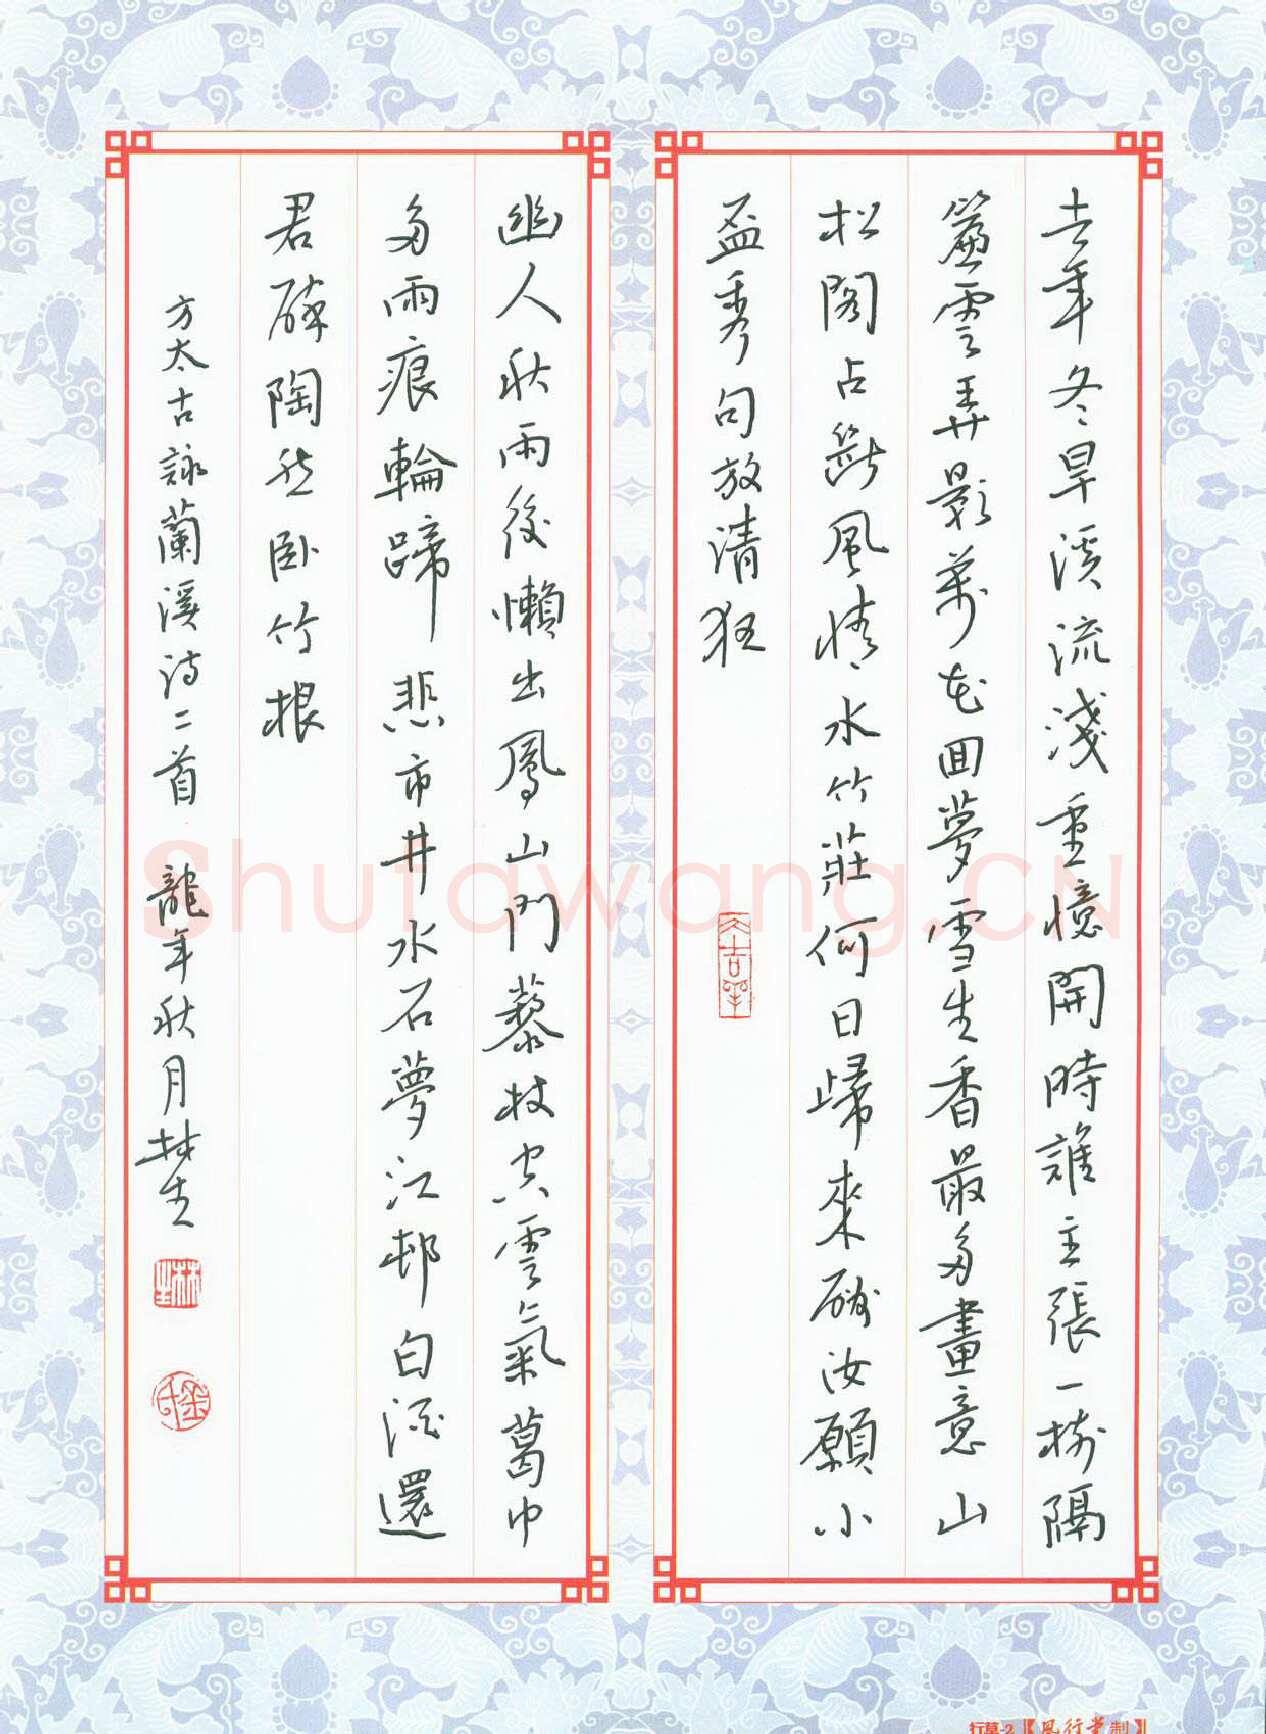 去年冬旱溪流淺重憶開時誰主張一樹隔
簾雲弄影萬花回夢雪生香最多畫意山
松閣占斷風情水竹莊何日歸來酬汝願小
盃秀句放清狂
幽人秋雨後懶出鳳山門藜杖穿雲氣葛巾
多雨痕輪蹄悲市井水石夢江邨白酒還
君醉陶然卧竹根
方太古詠蘭溪詩二首 龍年秋月林生
Shufawang.CN
行草-2【風行堂制】